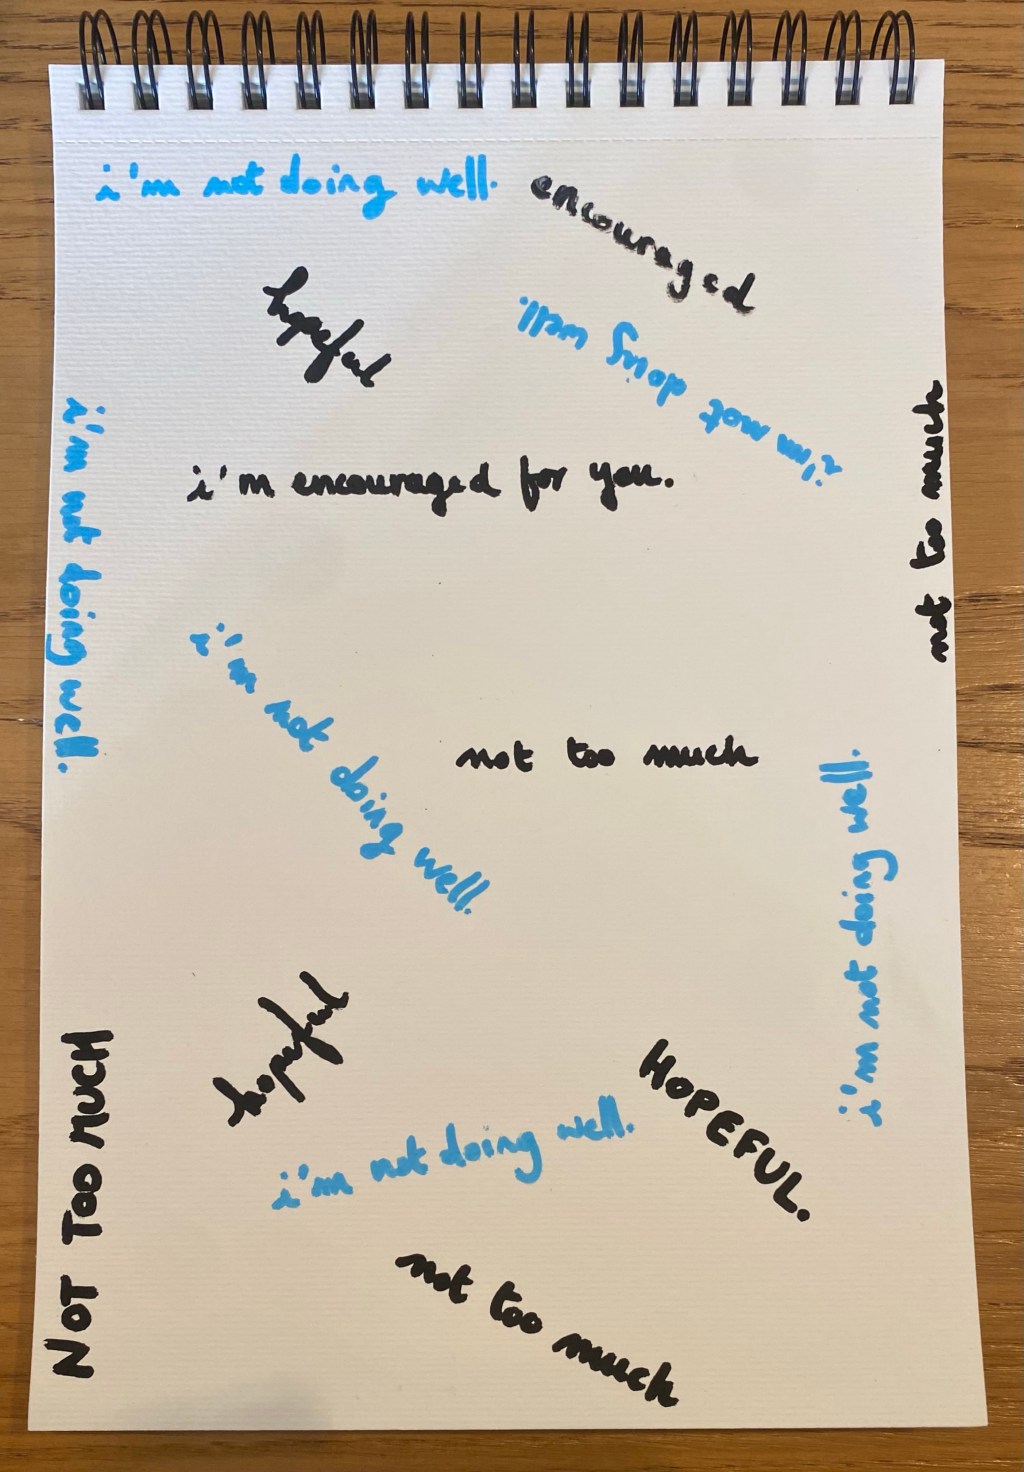 i'm not doing well.
encouraged
hopeful
i'm not doing well.
i'm not doing well.
not too much
i'm encouraged for you.
i'm not doing well.
not too much
i'm not doing well.
hopeful
HOPEFUL.
NOT TOO MUCH
i'm not doing well.
not too much